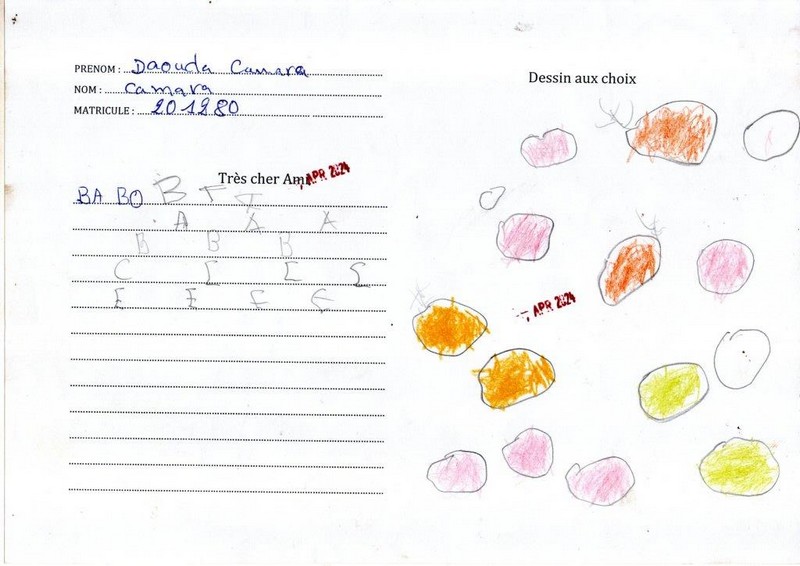 PRENOM : Daouda Camara
NOM : Camara
MATRICULE : 201280
Très cher Ami
APR 2024
BA BO B F I
A A A
B B B
C C C C
E E E E
Dessin aux choix
APR 2024